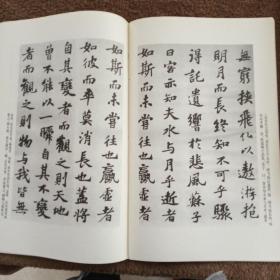 無窮挾飛仙以遨游抱
明月而長終知不可乎驟
得託遺響於悲風蘇子
曰客亦知夫水與月乎逝者
如斯而未嘗往也贏虛者
如斯而未嘗往也贏虛者
如彼而卒莫消長也蓋將
自其變者而觀之則天地
曾不能以一瞬自其不變
者而觀之則物與我皆無